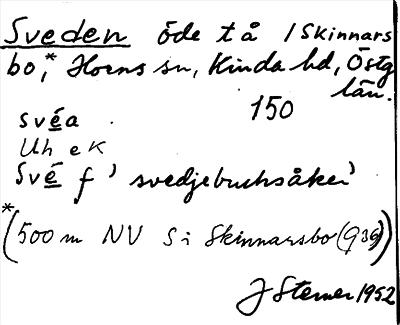 Sveden öde t å / Skinnars
bo,* Horns sn, Kinda hd, Östg
län.
150
svéa
Uh e K
Své f ' svedjebruksåker'
*(500 m NV Si Skinnarsbo (936))
J Sterner 1952